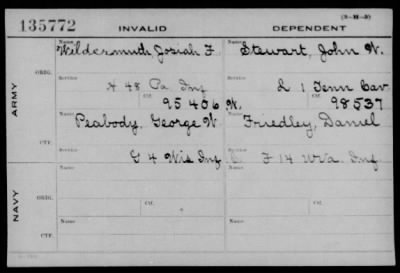 (3-M-3)
135772 INVALID DEPENDENT
Name Wildermuth, Josiah F. Name Stewart, John W.
ORIG. Service Service
H 48 Pa Inf L 1 Tenn Cav
Ctf. 95406 W. Ctf. 98537
ARMY
Name Peabody, George W Name Friedley, Daniel
CTF. Service Service
G 4 Wis Inf F 14 W Va Inf
Name Name
ORIG. Service Service
NAVY
Ctf. Ctf.
Name Name
CTF. Service Service